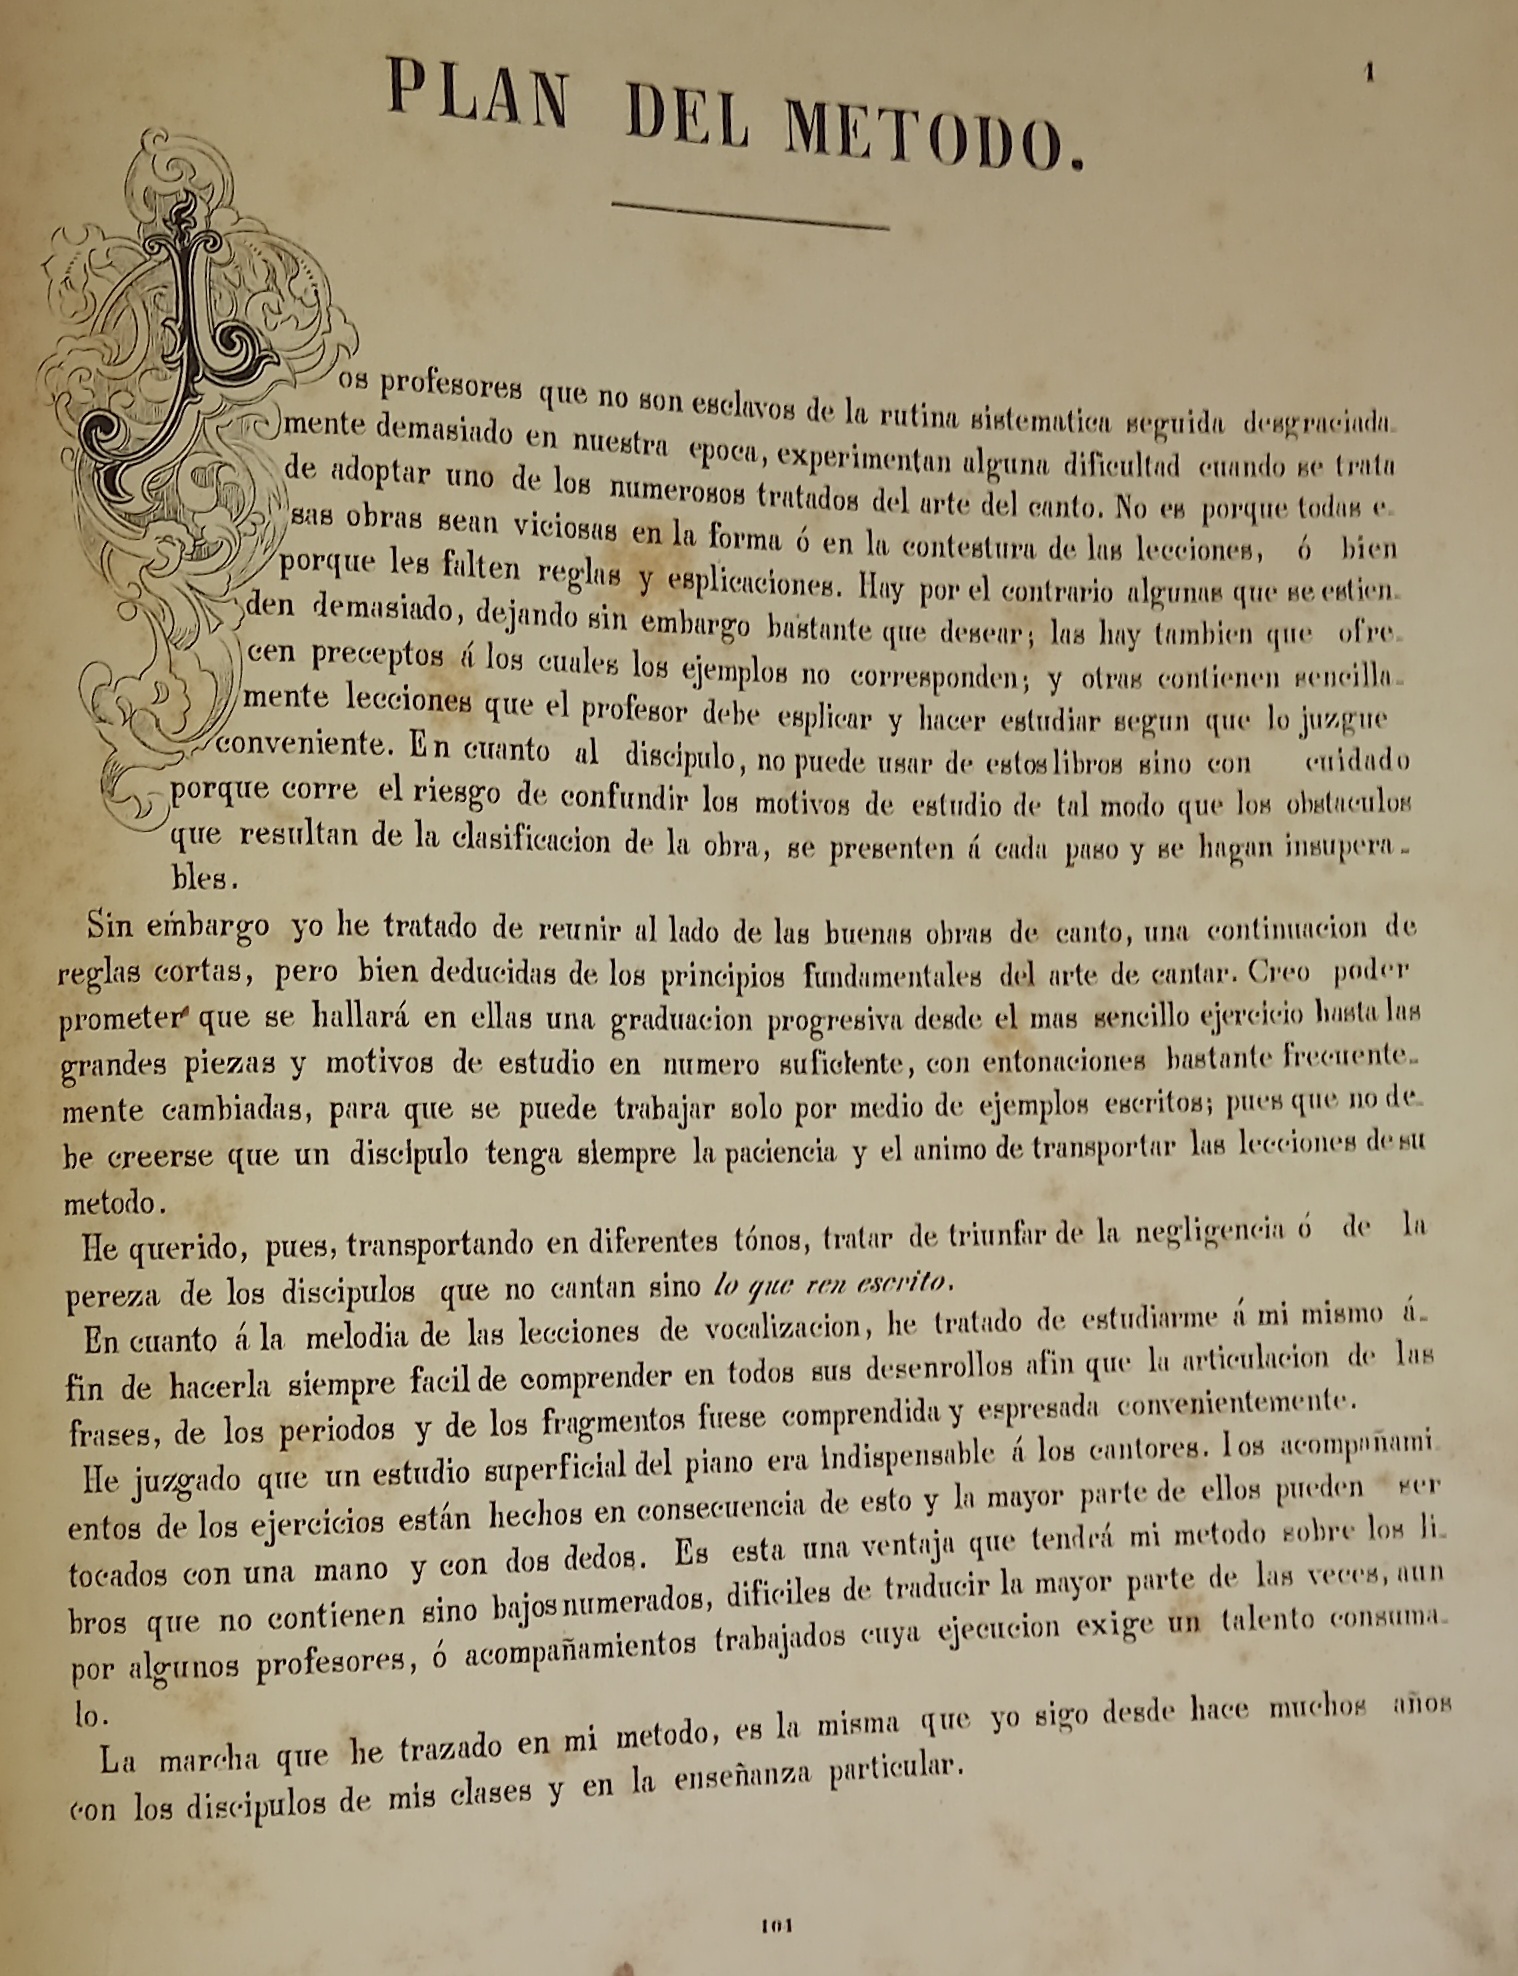 1
PLAN DEL METODO.
Los profesores que no son esclavos de la rutina sistematica seguida desgraciada-
mente demasiado en nuestra epoca, experimentan alguna dificultad cuando se trata
de adoptar uno de los numerosos tratados del arte del canto. No es porque todas e-
sas obras sean viciosas en la forma ó en la contestura de las lecciones, ó bien
porque les falten reglas y esplicaciones. Hay por el contrario algunas que se estien-
den demasiado, dejando sin embargo bastante que desear; las hay tambien que ofre-
cen preceptos á los cuales los ejemplos no corresponden; y otras contienen sencilla-
mente lecciones que el profesor debe esplicar y hacer estudiar segun que lo juzgue
conveniente. En cuanto al discipulo, no puede usar de estos libros sino con cuidado
porque corre el riesgo de confundir los motivos de estudio de tal modo que los obstaculos
que resultan de la clasificacion de la obra, se presenten á cada paso y se hagan insupera-
bles.
Sin embargo yo he tratado de reunir al lado de las buenas obras de canto, una continuacion de
reglas cortas, pero bien deducidas de los principios fundamentales del arte de cantar. Creo poder
prometer que se hallará en ellas una graduacion progresiva desde el mas sencillo ejercicio hasta las
grandes piezas y motivos de estudio en numero suficiente, con entonaciones bastante frecuente-
mente cambiadas, para que se puede trabajar solo por medio de ejemplos escritos; pues que no de-
be creerse que un discipulo tenga siempre la paciencia y el animo de transportar las lecciones de su
metodo.
He querido, pues, transportando en diferentes tónos, tratar de triunfar de la negligencia ó de la
pereza de los discipulos que no cantan sino lo que ven escrito.
En cuanto á la melodia de las lecciones de vocalizacion, he tratado de estudiarme á mi mismo á-
fin de hacerla siempre facil de comprender en todos sus desenrollos afin que la articulacion de las
frases, de los periodos y de los fragmentos fuese comprendida y espresada convenientemente.
He juzgado que un estudio superficial del piano era indispensable á los cantores. Los acompañami
entos de los ejercicios están hechos en consecuencia de esto y la mayor parte de ellos pueden ser
tocados con una mano y con dos dedos. Es esta una ventaja que tendrá mi metodo sobre los li-
bros que no contienen sino bajos numerados, dificiles de traducir la mayor parte de las veces, aun
por algunos profesores, ó acompañamientos trabajados cuya ejecucion exige un talento consuma-
lo.
La marcha que he trazado en mi metodo, es la misma que yo sigo desde hace muchos años
con los discipulos de mis clases y en la enseñanza particular.
101